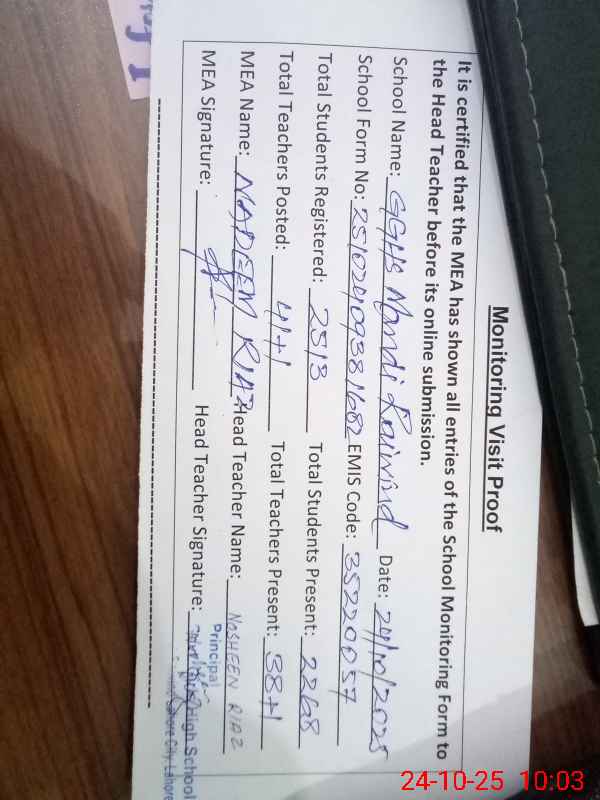 Monitoring Visit Proof
It is certified that the MEA has shown all entries of the School Monitoring Form to
the Head Teacher before its online submission.
School Name: GGHS Mandi Raiwind Date: 24/10/2025
School Form No: 25102409381682 EMIS Code: 35220057
Total Students Registered: 2513 Total Students Present: 2268
Total Teachers Posted: 41+1 Total Teachers Present: 38+1
MEA Name: NADEEM RIAZ Head Teacher Name: NOSHEEN RIAZ
MEA Signature: Head Teacher Signature:
Principal
High School
Lahore City, Lahore
24-10-25 10:03